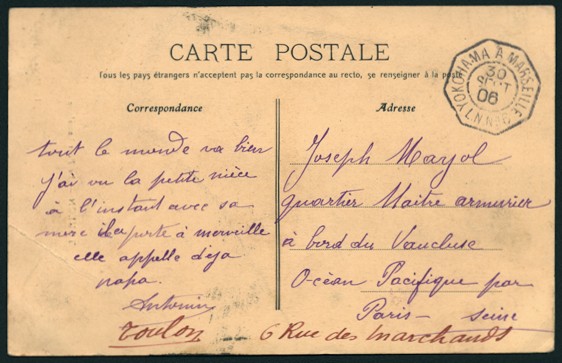 CARTE POSTALE
Tous les pays étrangers n'acceptent pas la correspondance au recto, se renseigner à la poste
Correspondance
tout le monde va bien
j'ai vu la petite nièce
à l'instant avec sa
mère porte à merveille
elle appelle deja
papa.
Antonin
Toulon
Adresse
Joseph Mayol
quartier Maitre armurier
à bord du Vaucluse
Océan Pacifique par
Paris – seine
6 Rue des marchands
YOKOHAMA A MARSEILLE
30
AOUT
06